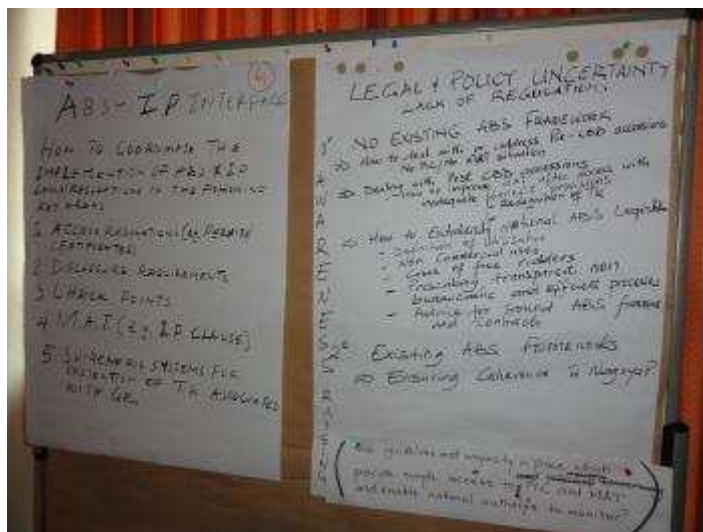 4
ABS-IP INTERFACE
HOW TO COORDINATE THE
IMPLEMENTATION OF ABS & IP
CONSIDERATIONS IN THE FOLLOWING
KEY AREAS
1 ACCESS REGULATIONS (eg PERMITS
CERTIFICATES)
2 DISCLOSURE REQUIREMENTS
3 CHECK POINTS
4 M.A.T (e.g. IP CLAUSE)
5 SUI GENERIS SYSTEMS FOR
PROTECTION OF TK ASSOCIATED
WITH GRs
LEGAL & POLICY UNCERTAINTY
LACK OF REGULATIONS
1° NO EXISTING ABS FRAMEWORK
How to deal with or address Pre-CBD accessions
No PIC/No MAT situation
Dealing with Post CBD accessions
inadequate
Recognition of TK
How to Establish National ABS Legislation
- Definition of utilisation
- Non Commercial uses
- Cases of free riders
- Prescribing transparent non
bureaucratic and efficient processes
- Advice for sound ABS
and Contracts
2° Existing ABS Frameworks
Ensuring Coherence to Nagoya P.
AWARENESS RAISING
guidelines and capacity in place which
provide simple access to PIC and MAT
and enable national authorities to monitor?